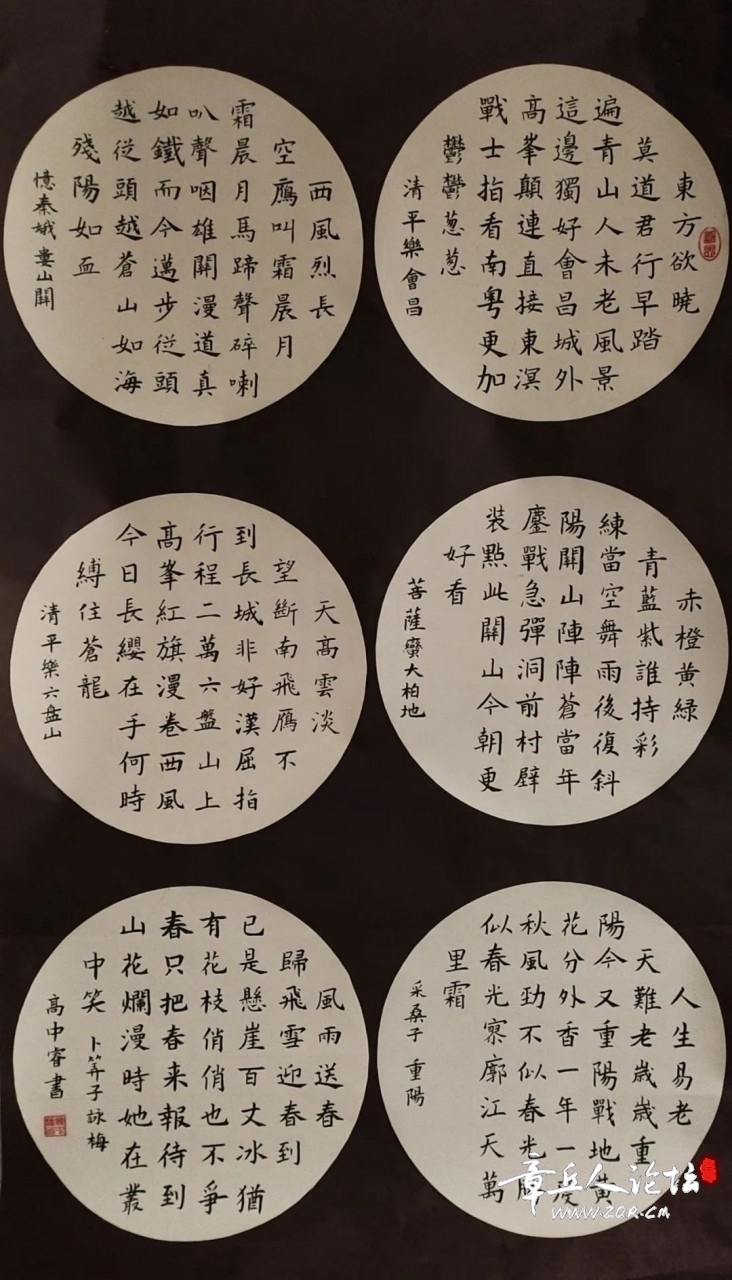 東方欲曉
莫道君行早踏
遍青山人未老風景
這邊獨好會昌城外
高峯顛連直接東溟
戰士指看南粵更加
鬱鬱葱葱
清平樂會昌
西風烈長
空鴈叫霜晨月
霜晨月馬蹄聲碎喇
叭聲咽雄關漫道真
如鐵而今邁步從頭
越從頭越蒼山如海
殘陽如血
憶秦娥婁山關
赤橙黃綠
青藍紫誰持彩
練當空舞雨後復斜
陽關山陣陣蒼當年
鏖戰急彈洞前村壁
裝點此關山今朝更
好看
菩薩蠻大柏地
天高雲淡
望斷南飛鴈不
到長城非好漢屈指
行程二萬六盤山上
高峯紅旗漫卷西風
今日長纓在手何時
縛住蒼龍
清平樂六盘山
人生易老
天難老歲歲重
陽今又重陽戰地黃
花分外香一年一度
秋風勁不似春光勝
似春光寥廓江天萬
里霜
采桑子 重陽
風雨送春
歸飛雪迎春到
已是懸崖百丈冰猶
有花枝俏俏也不爭
春只把春来報待到
山花爛漫時她在叢
中笑 卜筭子詠梅
高中睿書
章丘人论坛
WWW.ZQR.CM